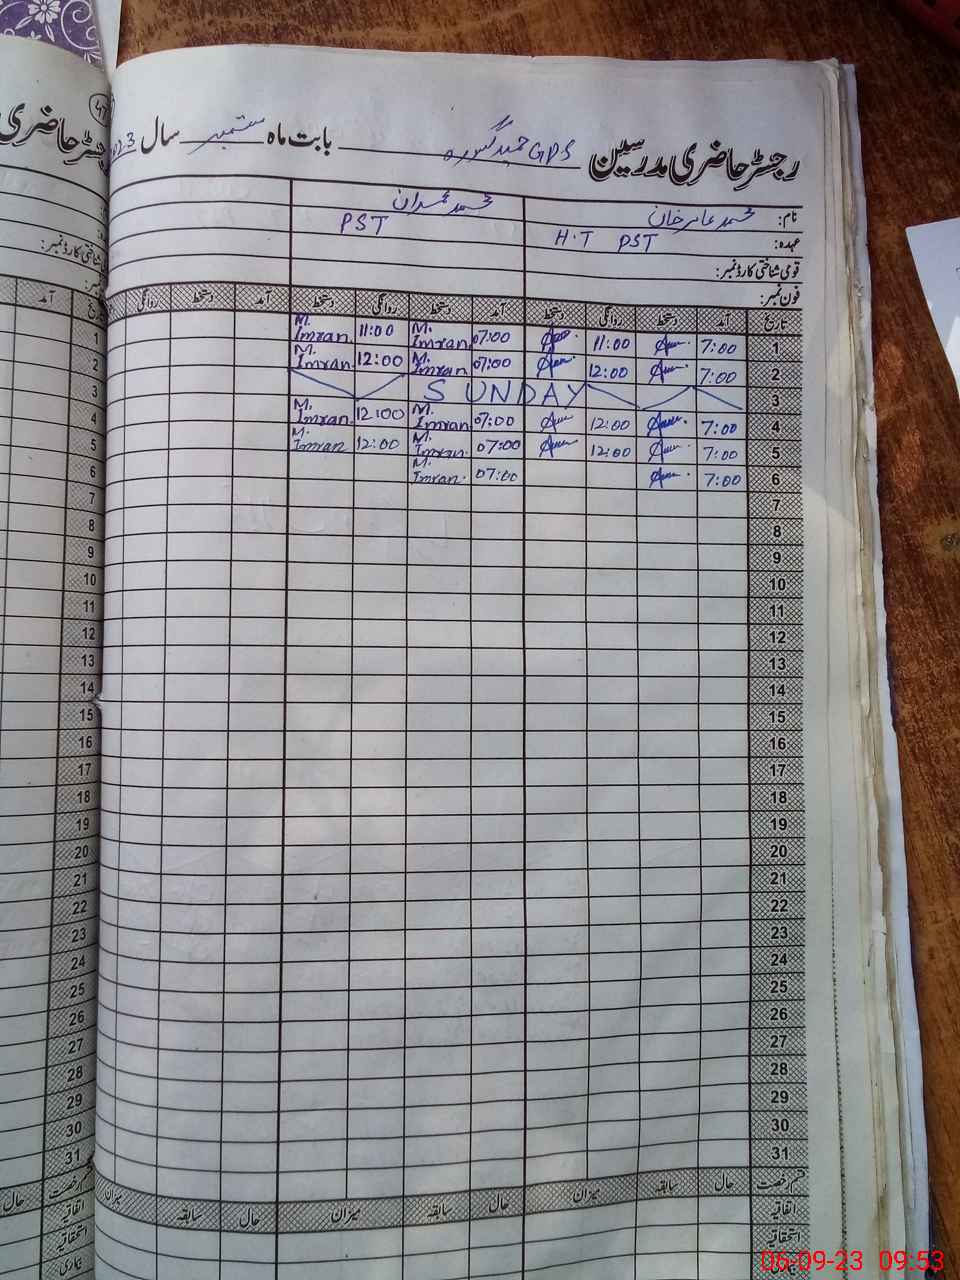 رجسٹر حاضری مدرسین GPS بابت ماہ ستمبر سال
نام: محمد عامر خان محمد عمران
عہدہ: H.T PST PST
قومی شناختی کارڈ نمبر:
فون نمبر:
تاریخ آمد دستخط روانگی دستخط آمد دستخط روانگی دستخط آمد دستخط روانگی
1 7:00 11:00 07:00 M. Imran 11:00 M. Imran
2 7:00 12:00 07:00 M. Imran 12:00 M. Imran
3 SUNDAY
4 7:00 12:00 07:00 M. Imran 12:00 M. Imran
5 7:00 12:00 07:00 M. Imran 12:00 M. Imran
6 7:00 07:00 M. Imran
7
8
9
10
11
12
13
14
15
16
17
18
19
20
21
22
23
24
25
26
27
28
29
30
31
قسم رخصت حال سابقہ میزان حال سابقہ میزان حال سابقہ میزان
اتفاقیہ
استحقاقیہ
بیماری
رجسٹر حاضری
قومی شناختی کارڈ نمبر:
تاریخ آمد
1
2
3
4
5
6
7
8
9
10
11
12
13
14
15
16
17
18
19
20
21
22
23
24
25
26
27
28
29
30
31
قسم رخصت حال
اتفاقیہ
استحقاقیہ
بیماری
06-09-23 09:53